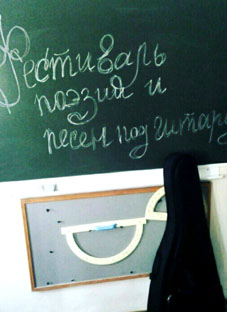 Фестиваль
поэзии и
песен под гитару